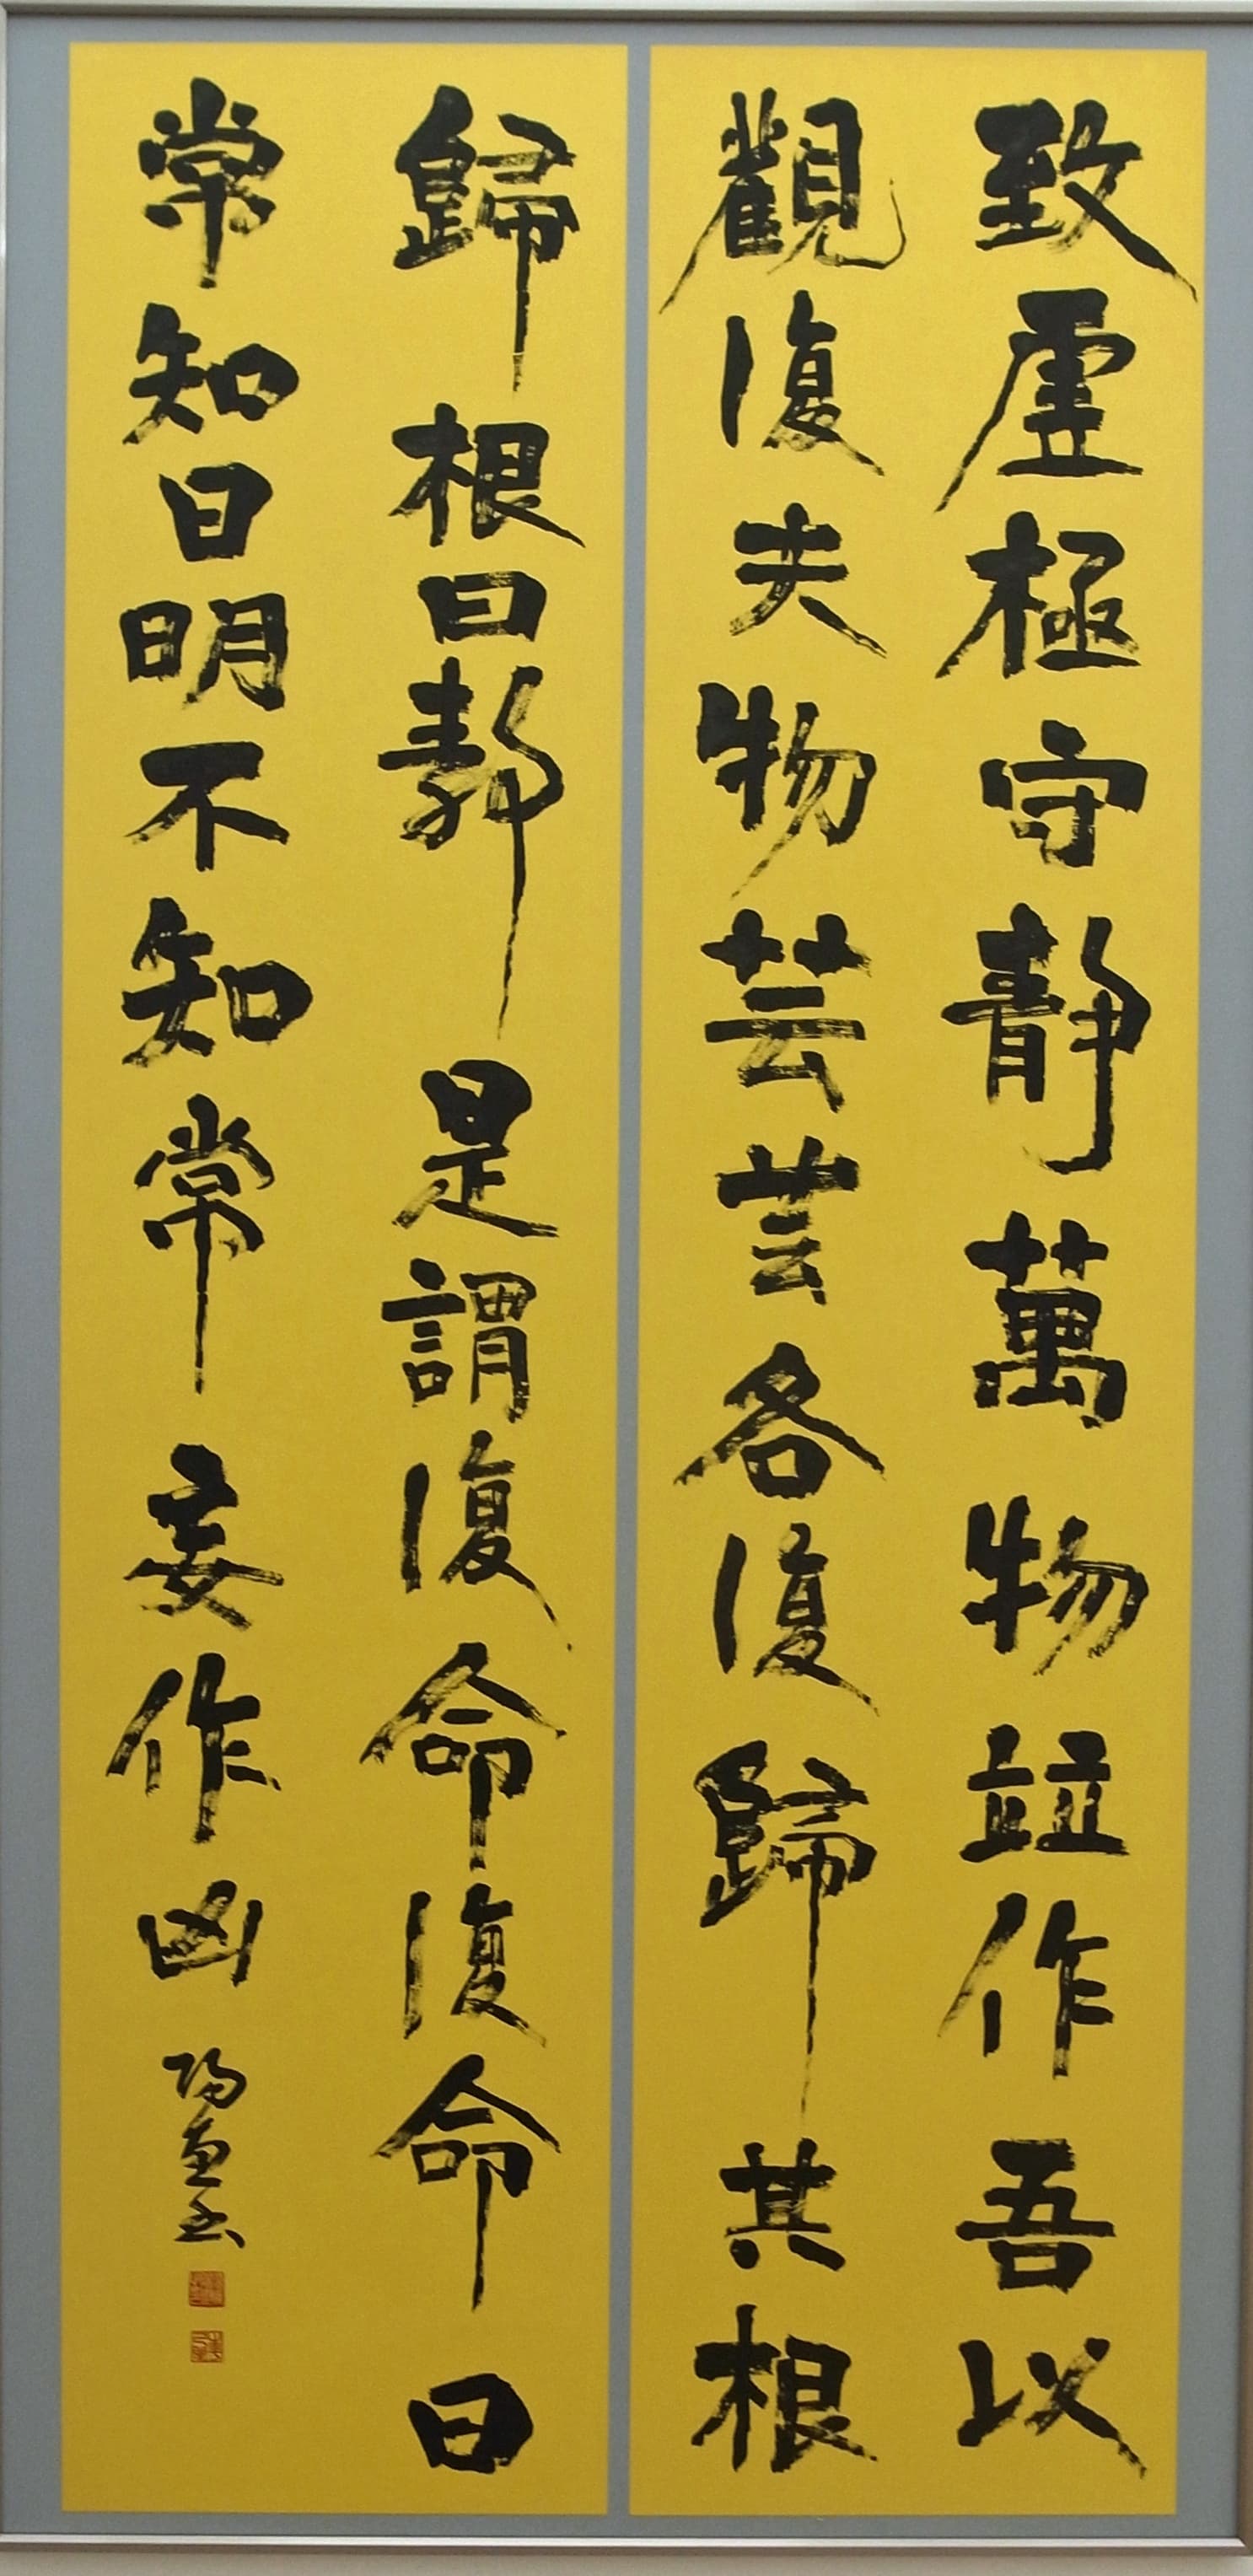 致虛極守靜萬物竝作吾以
觀復夫物芸芸各復歸其根
歸根曰靜是謂復命復命曰
常知曰明不知常妄作凶